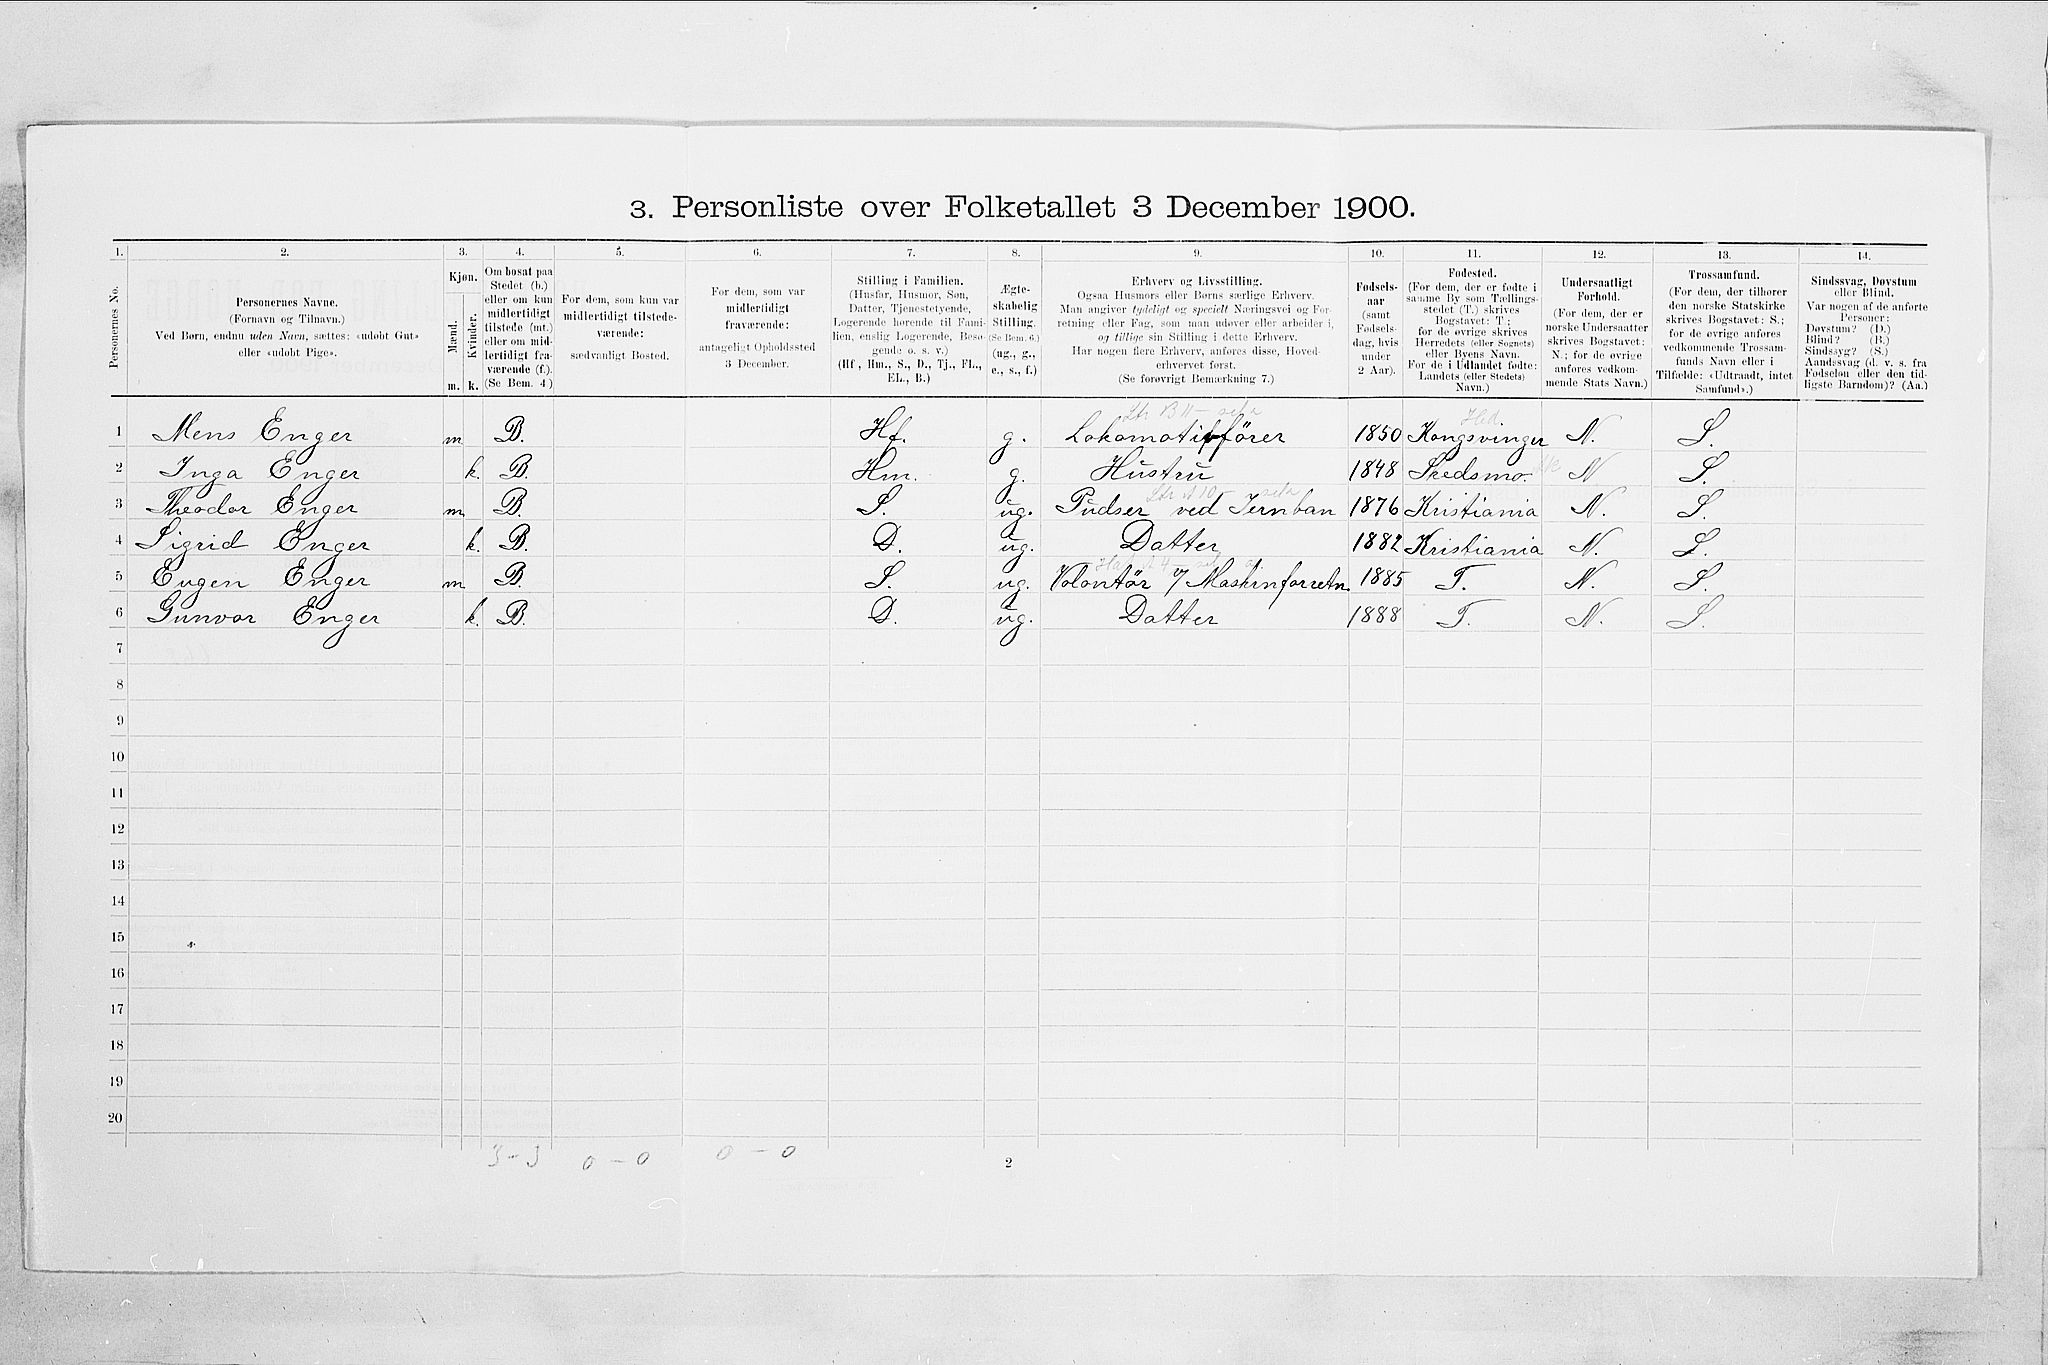 3. Personliste over Folketallet 3 December 1900.
1. 2. 3. 4. 5. 6. 7. 8. 9. 10. 11. 12. 13. 14.
Personernes No.
Personernes Navne.
(Fornavn og Tilnavn.)
Ved Børn, endnu uden Navn, sættes: «udøbt Gut»
eller «udøbt Pige».
Kjøn.
Mænd.
Kvinder.
m. k.
Om bosat paa
Stedet (b.)
eller om kun
midlertidigt
tilstede (mt.)
eller om mid-
lertidigt fra-
værende (f.).
(Se Bem. 4)
For dem, som kun var
midlertidigt tilstede-
værende:
sædvanligt Bosted.
For dem, som var
midlertidigt
fraværende:
antageligt Opholdssted
3 December.
Stilling i Familien.
(Husfar, Husmor, Søn,
Datter, Tjenestetyende,
Logerende hørende til Fami-
lien, enslig Logerende, Besø-
gende o. s. v.)
(Hf., Hm., S., D., Tj., FL.,
EL., B.)
Ægte-
skabelig
Stilling.
(Se Bem. 6.)
(ug., g.,
e., s., f.)
Erhverv og Livsstilling.
Ogsaa Husmors eller Børns særlige Erhverv.
Man angiver tydeligt og specielt Næringsvei og For-
retning eller Fag, som man udøver eller arbeider i,
og tillige sin Stilling i dette Erhverv.
Har nogen flere Erhverv, anføres disse, Hoved-
erhvervet først.
(Se forøvrigt Bemærkning 7.)
Fødsels-
aar
(samt
Fødsels-
dag, hvis
under
2 Aar).
Fødested.
(For dem, der er fødte i
samme By som Tællings-
stedet (T.) skrives
Bogstavet: T.;
for de øvrige skrives
Herredets (eller Sognets)
eller Byens Navn.
For de i Udlandet fødte:
Landets (eller Stedets)
Navn.)
Undersaatligt
Forhold.
(For dem, der er
norske Undersaatter
skrives Bogstavet:
N.; for de øvrige
anføres vedkom-
mende Stats Navn.)
Trossamfund.
(For dem, der tilhører
den norske Statskirke
skrives Bogstavet: S.;
for de øvrige anføres
vedkommende Trossam-
funds Navn eller i
Tilfælde: «Udtraadt, intet
Samfund».)
Sindssvag, Døvstum
eller Blind.
Var nogen af de anførte
Personer:
Døvstum? (D.)
Blind? (B.)
Sindssyg? (S.)
Aandssvag (d. v. s. fra
Fødselen eller den tid-
ligste Barndom)? (Aa.)
Hed.
1 Mens Enger m B. Hf. g. Lokomotivfører 1850 Kongsvinger N. S.
2 Inga Enger k. B. Hm. g. Hustru 1848 Skedsmo. N S.
3 Theodor Enger m. B. S. ug. Pudser ved Jernban 1876 Kristiania N. S.
4 Sigrid Enger k. B. D. ug. Datter 1882 Kristiania N. S.
5 Eugen Enger m B. S. ug. Volontør v/ Maskinforretn. 1885 T. N. S.
6 Gunvor Enger k. B. D. ug. Datter 1888 T. N. S.
7
8
9
10
11
12
13
14
15
16
17
18
19
20
3 - 3 0 - 0 0 - 0
2